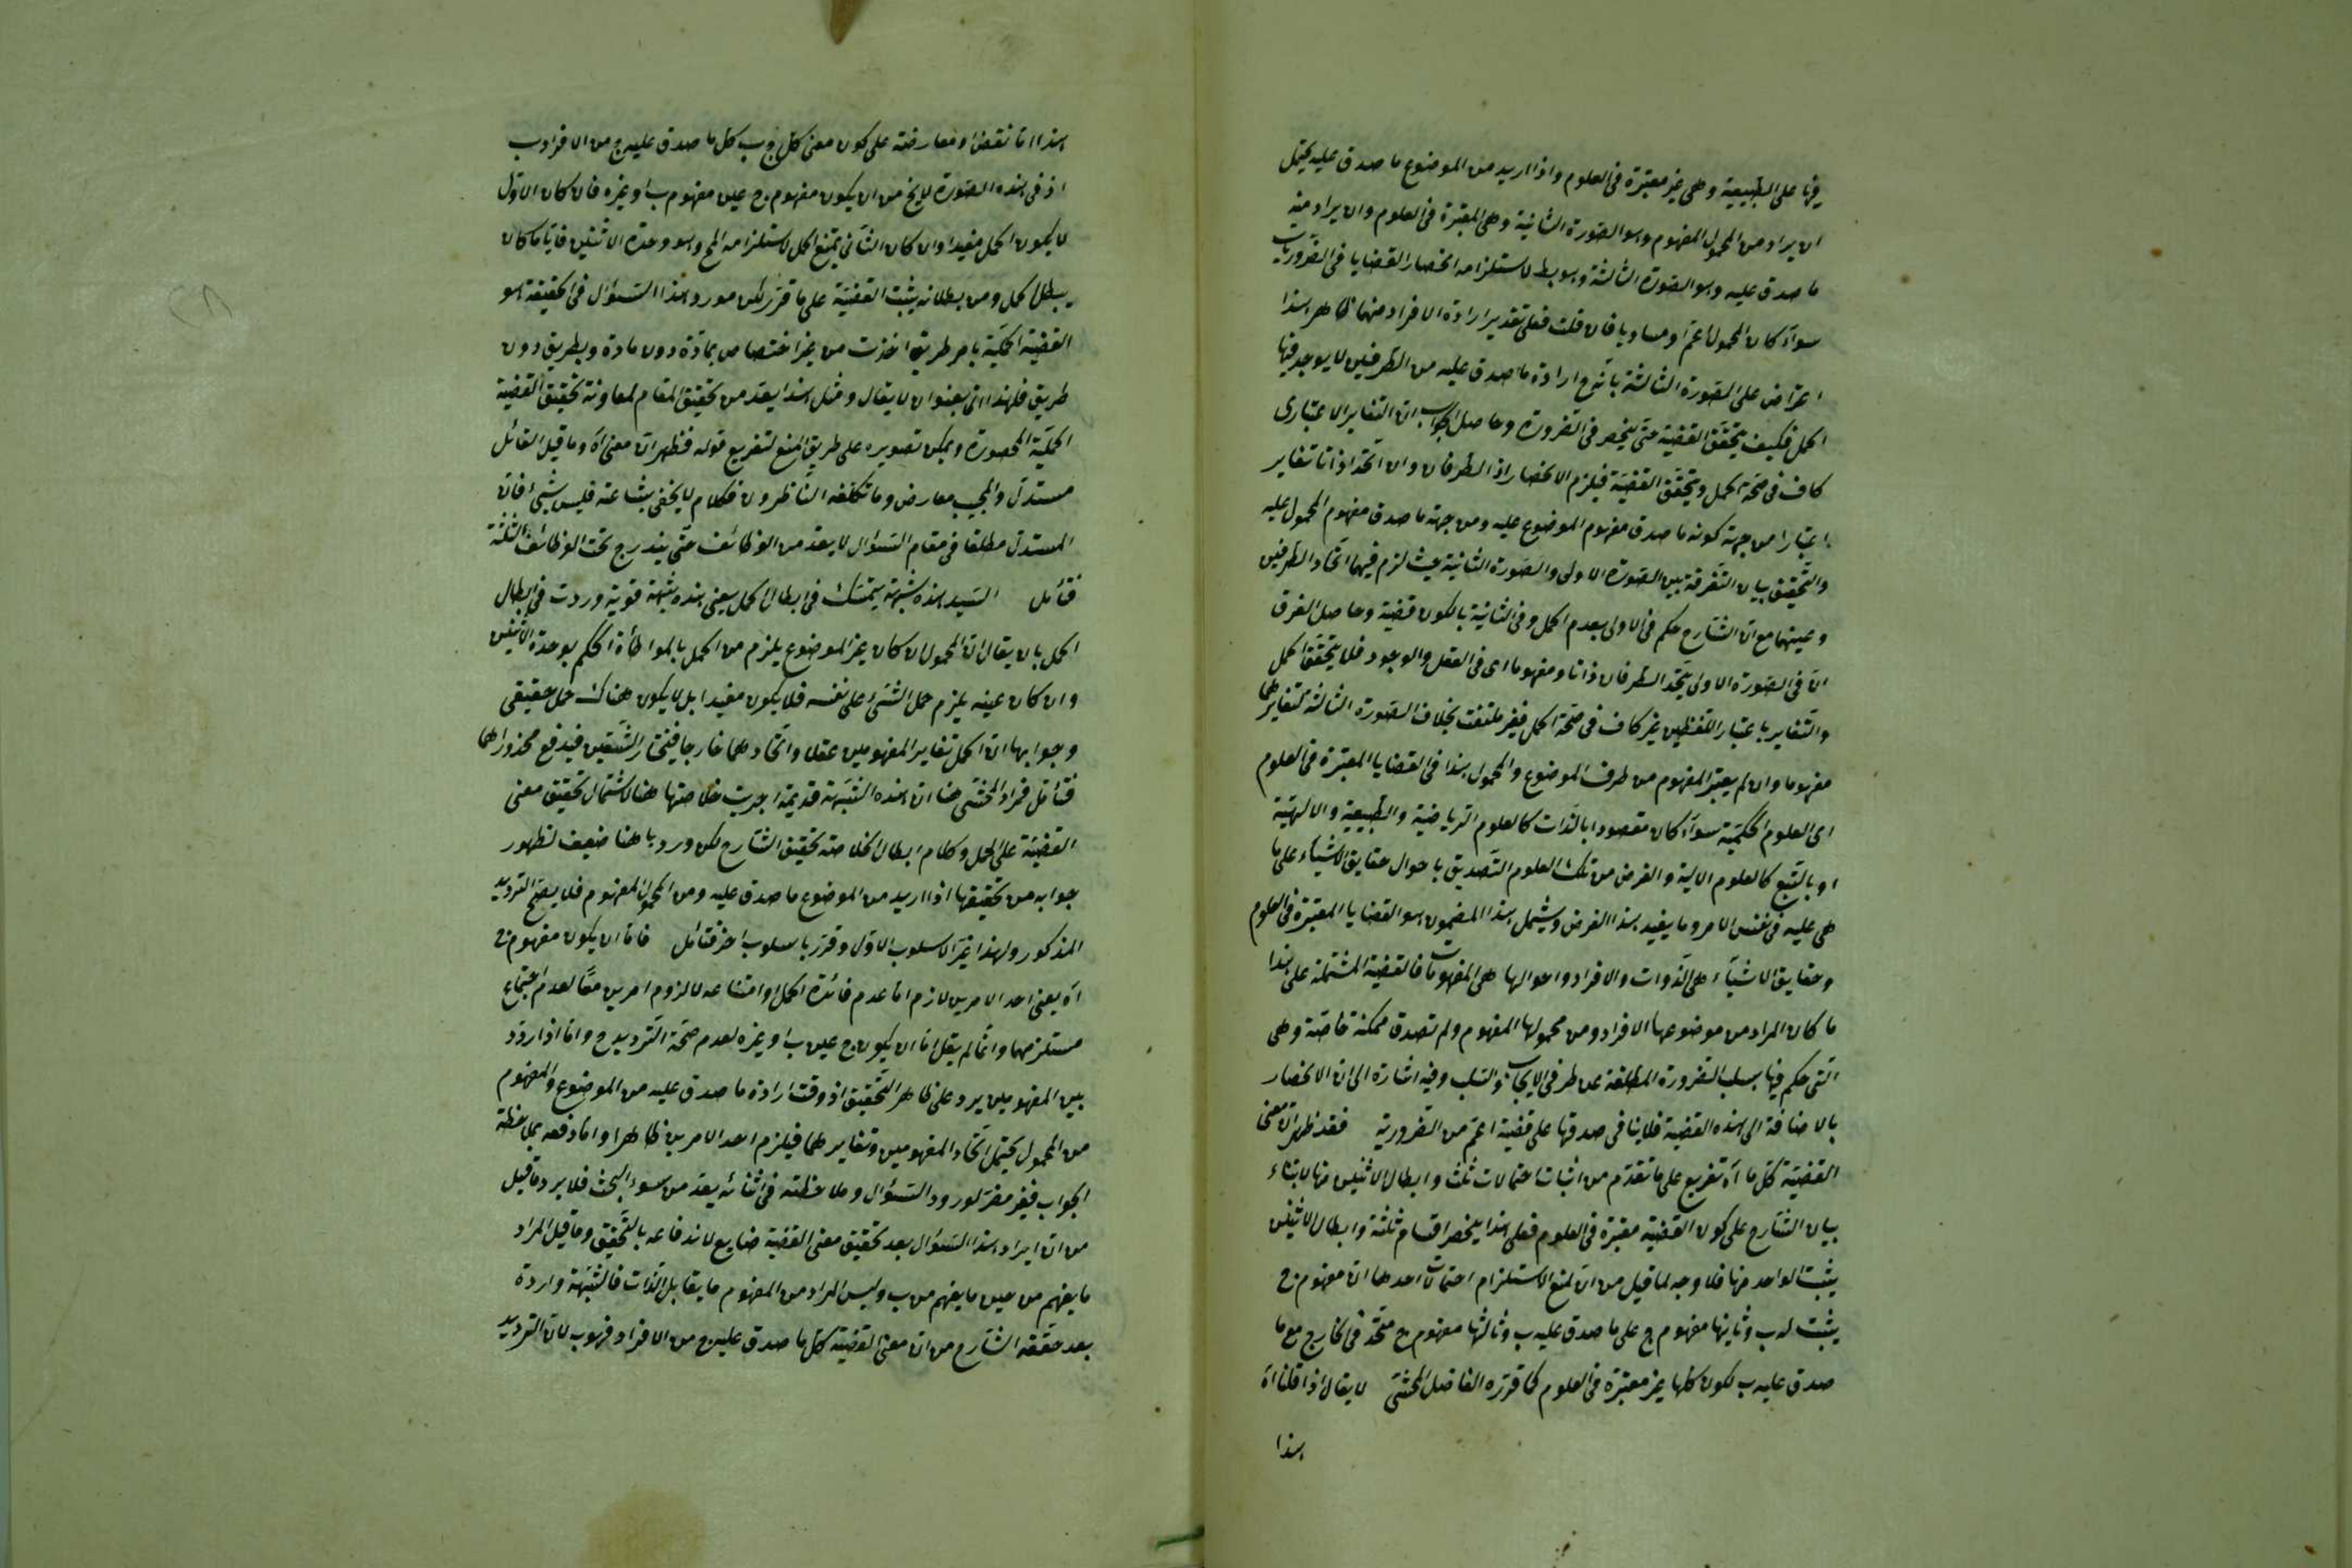 فيها على الطبيعية وهى غير معتبرة فى العلوم واذا اريد من الموضوع ما صدق عليه يحتمل
ان يراد من المحمول المفهوم وهو الصورة الثانية وهى المعتبرة فى العلوم وان يراد منه
ما صدق عليه وهو الصورة الثالثة وهو بط لاستلزامه انحصار القضايا فى الضروريات
سواء كان المحمول اعم او مساويا فان قلت فعلى تقدير ارادة الافراد منهما ظاهر هذا
اعتراض على الصورة الثالثة بانه ح ارادة ما صدق عليه من الطرفين لا يوجد فيها
الحمل فكيف يتحقق القضية حتى ينحصر فى الضرورة وحاصل الجواب ان التغاير الاعتبارى
كاف فى صحة الحمل ويتحقق القضية فيلزم الانحصار اذ الطرفان وان اتحدا ذاتا تغاير
اعتبارا من جهة كونه ما صدق مفهوم الموضوع عليه ومن جهة ما صدق مفهوم المحمول عليه
والتحقيق بيان التفرقة بين الصورة الاولى والصورة الثانية حيث لزم فيهما اتحاد الطرفين
وعينهما مع ان الشارح حكم فى الاولى بعدم الحمل وفى الثانية بالكون قضية وحاصل الفرق
ان فى الصورة الاولى يتحد الطرفان ذاتا ومفهوما اى فى العقل والوجود فلا يتحقق الحمل
والتغاير باعتبار اللفظين غير كاف فى صحة الحمل فغير ملتفت بخلاف الصورة الثالثة لتغايرهما
مفهوما وان لم يعتبر المفهوم من طرف الموضوع والمحمول هذا فى القضايا المعتبرة فى العلوم
اى العلوم الحكمية سواء كان مقصودا بالذات كالعلوم الرياضية والطبيعية والالهية
او بالتبع كالعلوم الالية والغرض من تلك العلوم التصديق باحوال حقايق الاشياء على ما
هى عليه فى نفس الامر وما يفيد هذا الغرض ويشمل هذا المضمون هو القضايا المعتبرة فى العلوم
وحقايق الاشياء هى الذوات والافراد واحوالها هى المفهومات فالقضية المشتملة على هذا
ما كان المراد من موضوعها الافراد ومن محمولها المفهوم ولم تصدق ممكنة خاصة وهى
التى حكم فيها بسلب الضرورة المطلقة عن طرفى الايجاب والسلب وفيه اشارة الى ان الانحصار
بالاضافة الى هذه القضية فلا ينافى صدقها على قضية اعم من الضرورية فقد ظهر ان معنى
القضية كل ما آه تفريع على ما تقدم من اثبات احتمالات ثلث وابطال الاثنين منها لابتناء
بيان الشارح على كون القضية معتبرة فى العلوم فعلى هذا ينحصر اقسام ثلثة وابطال الاثنين
يثبت الواحد منها فلا وجه لما قيل من ان لمنع الاستلزام احتمالات احدها ان مفهوم ج
يثبت له ب وثانيها مفهوم ج على ما صدق عليه ب وثالثها مفهوم ج متحد فى الخارج مع ما
صدق عليه ب لكون كلها غير معتبرة فى العلوم كما قرره الفاضل المحشى لا يقال اذا قلنا آه
هذا
هذا اما نقض او معارضة على كون معنى كل ج ب كل ما صدق عليه ج من الافراد ب
اذ فى هذه الصورة لا يخ من ان يكون مفهوم ج عين مفهوم ب او غيره فان كان الاول
لا يكون الحمل مفيدا وان كان الثانى يمتنع الحمل لاستلزامه المح وهو وحدة الاثنين فايا ما كان
يبطل الحمل ومن بطلانه يثبت القضية على ما قرر لكن مورد هذا السؤال فى الحقيقة هو
القضية الحملية باى طريق اخذت من غير اختصاص بمادة دون مادة وبطريق دون
طريق فلهذا اتى بعنوان لا يقال ومثل هذا يعد من تحقيق المقام لمعاونة تحقيق القضية
الحملية المحصورة ويمكن تصويره على طريق المنع لتفريع قوله فظهر ان معنى آه وما قيل القائل
مستدل والمجيب معارض وما تكلفه الناظرون فكلام لا يخفى بشاعته فليس بشئ فان
المستدل مطلقا فى مقام السؤال لا يعد من الوظائف حتى يندرج تحت الوظائف الثلثة
فتأمل السيد هذه شبهة يتمسك فى ابطال الحمل يعنى هذه شبهة قوية وردت فى ابطال
الحمل بان يقال ان المحمول ان كان غير الموضوع يلزم من الحمل بالمواطأة الحكم بوحدة الاثنين
وان كان عينه يلزم حمل الشئ على نفسه فلا يكون مفيدا بل لا يكون هناك حمل حقيقى
وجوابها ان الحمل تغاير المفهومين عقلا واتحادهما خارجا فيختار الشقين فيدفع محذوراهما
فتأمل فمراد المحشى هنا ان هذه الشبهة قديمة اجريت خلاصتها هنا لاشتمال تحقيق معنى
القضية على الحمل وكلام ابطال الخلاصة تحقيق الشارح لكن ورودها هنا ضعيف لظهور
جوابه من تحقيقها اذا اريد من الموضوع ما صدق عليه ومن المحمول المفهوم فلا يصح الترديد
المذكور ولهذا غير الاسلوب الاول وقرر باسلوب اخر فتأمل فاما ان يكون مفهوم ج
آه يعنى احد الامرين لازم اما عدم فائدة الحمل او امتناعه لا لزوم امرين معا لعدم اجتماع
مستلزمهما وانما لم يقل اما ان يكون ج عين ب او غيره لعدم صحة الترديد ح واما اذا ردد
بين المفهومين يرد على ظاهر التحقيق اذ وقت ارادة ما صدق عليه من الموضوع والمفهوم
من المحمول يحتمل اتحاد المفهومين وتغايرهما فيلزم احد الامرين ظاهرا واما دفعه بملاحظة
الجواب فغير مضر لورود السؤال وملاحظته فى اثنائه يعد من سوء البحث فلا يرد ما قيل
من ان ايراد هذا السؤال بعد تحقيق معنى القضية ضايع لاندفاعه بالتحقيق وما قيل المراد
ما يفهم من عين ما يفهم من ب وليس المراد من المفهوم ما يقابل الذات فالشبهة واردة
بعد حققه الشارح من ان معنى القضية كل ما صدق عليه ج من الافراد فهو ب لان الترديد